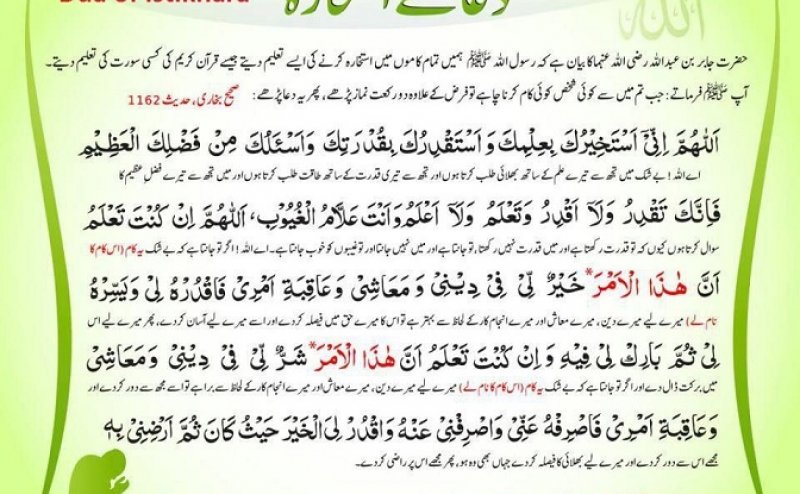 Dua of Istikhara
دعائے استخارہ
الله
حضرت جابر بن عبداللہ رضی اللہ عنہما کا بیان ہے کہ رسول اللہ ﷺ ہمیں تمام کاموں میں استخارہ کرنے کی ایسے تعلیم دیتے جیسے قرآن کریم کی کسی سورت کی تعلیم دیتے۔
آپ ﷺ فرماتے: جب تم میں سے کوئی شخص کوئی کام کرنا چاہے تو فرض کے علاوہ دو رکعت نماز پڑھے، پھر یہ دعا پڑھے: صحیح بخاری، حدیث 1162
اَللّٰهُمَّ اِنِّيْٓ اَسْتَخِيْرُكَ بِعِلْمِكَ وَ اَسْتَقْدِرُكَ بِقُدْرَتِكَ وَاَسْئَلُكَ مِنْ فَضْلِكَ الْعَظِيْمِ
اے اللہ! بے شک میں تجھ سے تیرے علم کے ساتھ بھلائی طلب کرتا ہوں اور تجھ سے تیری قدرت کے ساتھ طاقت طلب کرتا ہوں اور میں تجھ سے تیرے فضلِ عظیم کا
فَاِنَّكَ تَقْدِرُ وَلَآ اَقْدِرُ وَتَعْلَمُ وَلَآ اَعْلَمُ وَاَنْتَ عَلَّامُ الْغُيُوْبِ، اَللّٰهُمَّ اِنْ كُنْتَ تَعْلَمُ
سوال کرتا ہوں کیوں کہ تو قدرت رکھتا ہے اور میں قدرت نہیں رکھتا، تو جانتا ہے اور میں نہیں جانتا اور تو غیبوں کو خوب جانتا ہے۔ اے اللہ! اگر تو جانتا ہے کہ بے شک یہ کام (اس کام کا
اَنَّ هٰذَا الْاَمْرَ* خَيْرٌ لِّيْ فِيْ دِيْنِيْ وَ مَعَاشِيْ وَعَاقِبَةِ اَمْرِيْ فَاقْدُرْهُ لِيْ وَيَسِّرْهُ
نام لے) میرے لیے میرے دین، میرے معاش اور میرے انجام کار کے لحاظ سے بہتر ہے تو اس کا میرے حق میں فیصلہ کردے اور اسے میرے لیے آسان کردے، پھر میرے لیے اس
لِيْ ثُمَّ بَارِكْ لِيْ فِيهِ وَ اِنْ كُنْتَ تَعْلَمُ اَنَّ هٰذَا الْاَمْرَ* شَرٌّ لِّيْ فِيْ دِيْنِيْ وَمَعَاشِيْ
میں برکت ڈال دے اور اگر تو جانتا ہے کہ بے شک یہ کام (اس کام کا نام لے) میرے لیے میرے دین، میرے معاش اور میرے انجام کار کے لحاظ سے برا ہے تو اسے مجھ سے دور کردے اور
وَعَاقِبَةِ اَمْرِيْ فَاصْرِفْهُ عَنِّيْ وَاصْرِفْنِيْ عَنْهُ وَاقْدُرْ لِيَ الْخَيْرَ حَيْثُ كَانَ ثُمَّ اَرْضِنِيْ بِهٖ
مجھے اس سے دور کردے اور میرے لیے بھلائی کا فیصلہ کردے جہاں بھی وہ ہو، پھر مجھے اس پر راضی کردے۔